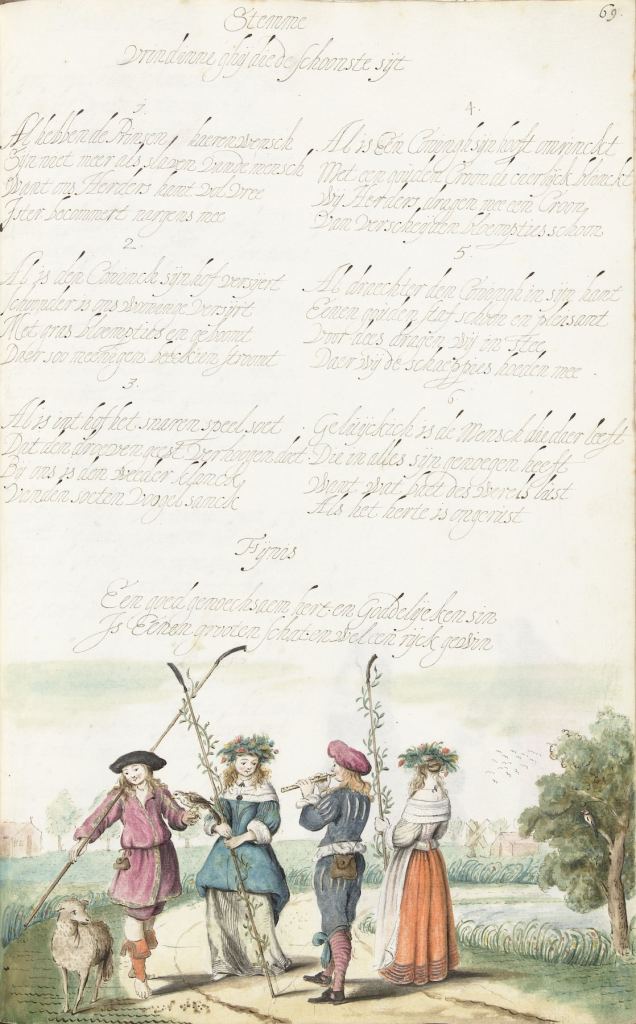 69.
Stemme
Vrindinne ghij die de schoonste sijt
1
Al hebben de Prinsen haeren wensch
Zijn niet meer als slaven vande mensch
Want ons Herders hant vol vree
Ister becommert nargens mee
2
Al is den Coninck sijn hof versiert
is ons versijrt
Met gras bloempties en geboomt
Daer soo beeckien stroomt
3
Al is int hof het snaren speel soet
Dat den droeven geest verhoogen doet
By ons is den weeder klanck
Vanden soeten vogel sanck
4.
Al is Een Coningh sijn hooft omrinckt
Met een gouden Croon die cierlijck blinckt
Wij Herders dragen mee een Croon
Van verscheijden bloempties schoon
5.
Al draechter den Coningh in sijn hant
Eenen gouden staf schoon en pleasant
Voor haes dragen wij in stee
Daer wij de schaeppies hoeden mee
6
Geluijckich is de Mensch die daer leeft
Die in alles sijn genoegen heeft
Want wat baet des werels lust
Als het herte is ongerust
Fijnis
Een goed genoechsaem hert en Goddelijcken sin
Is Eenen grooten schat en wel een rijck gewin